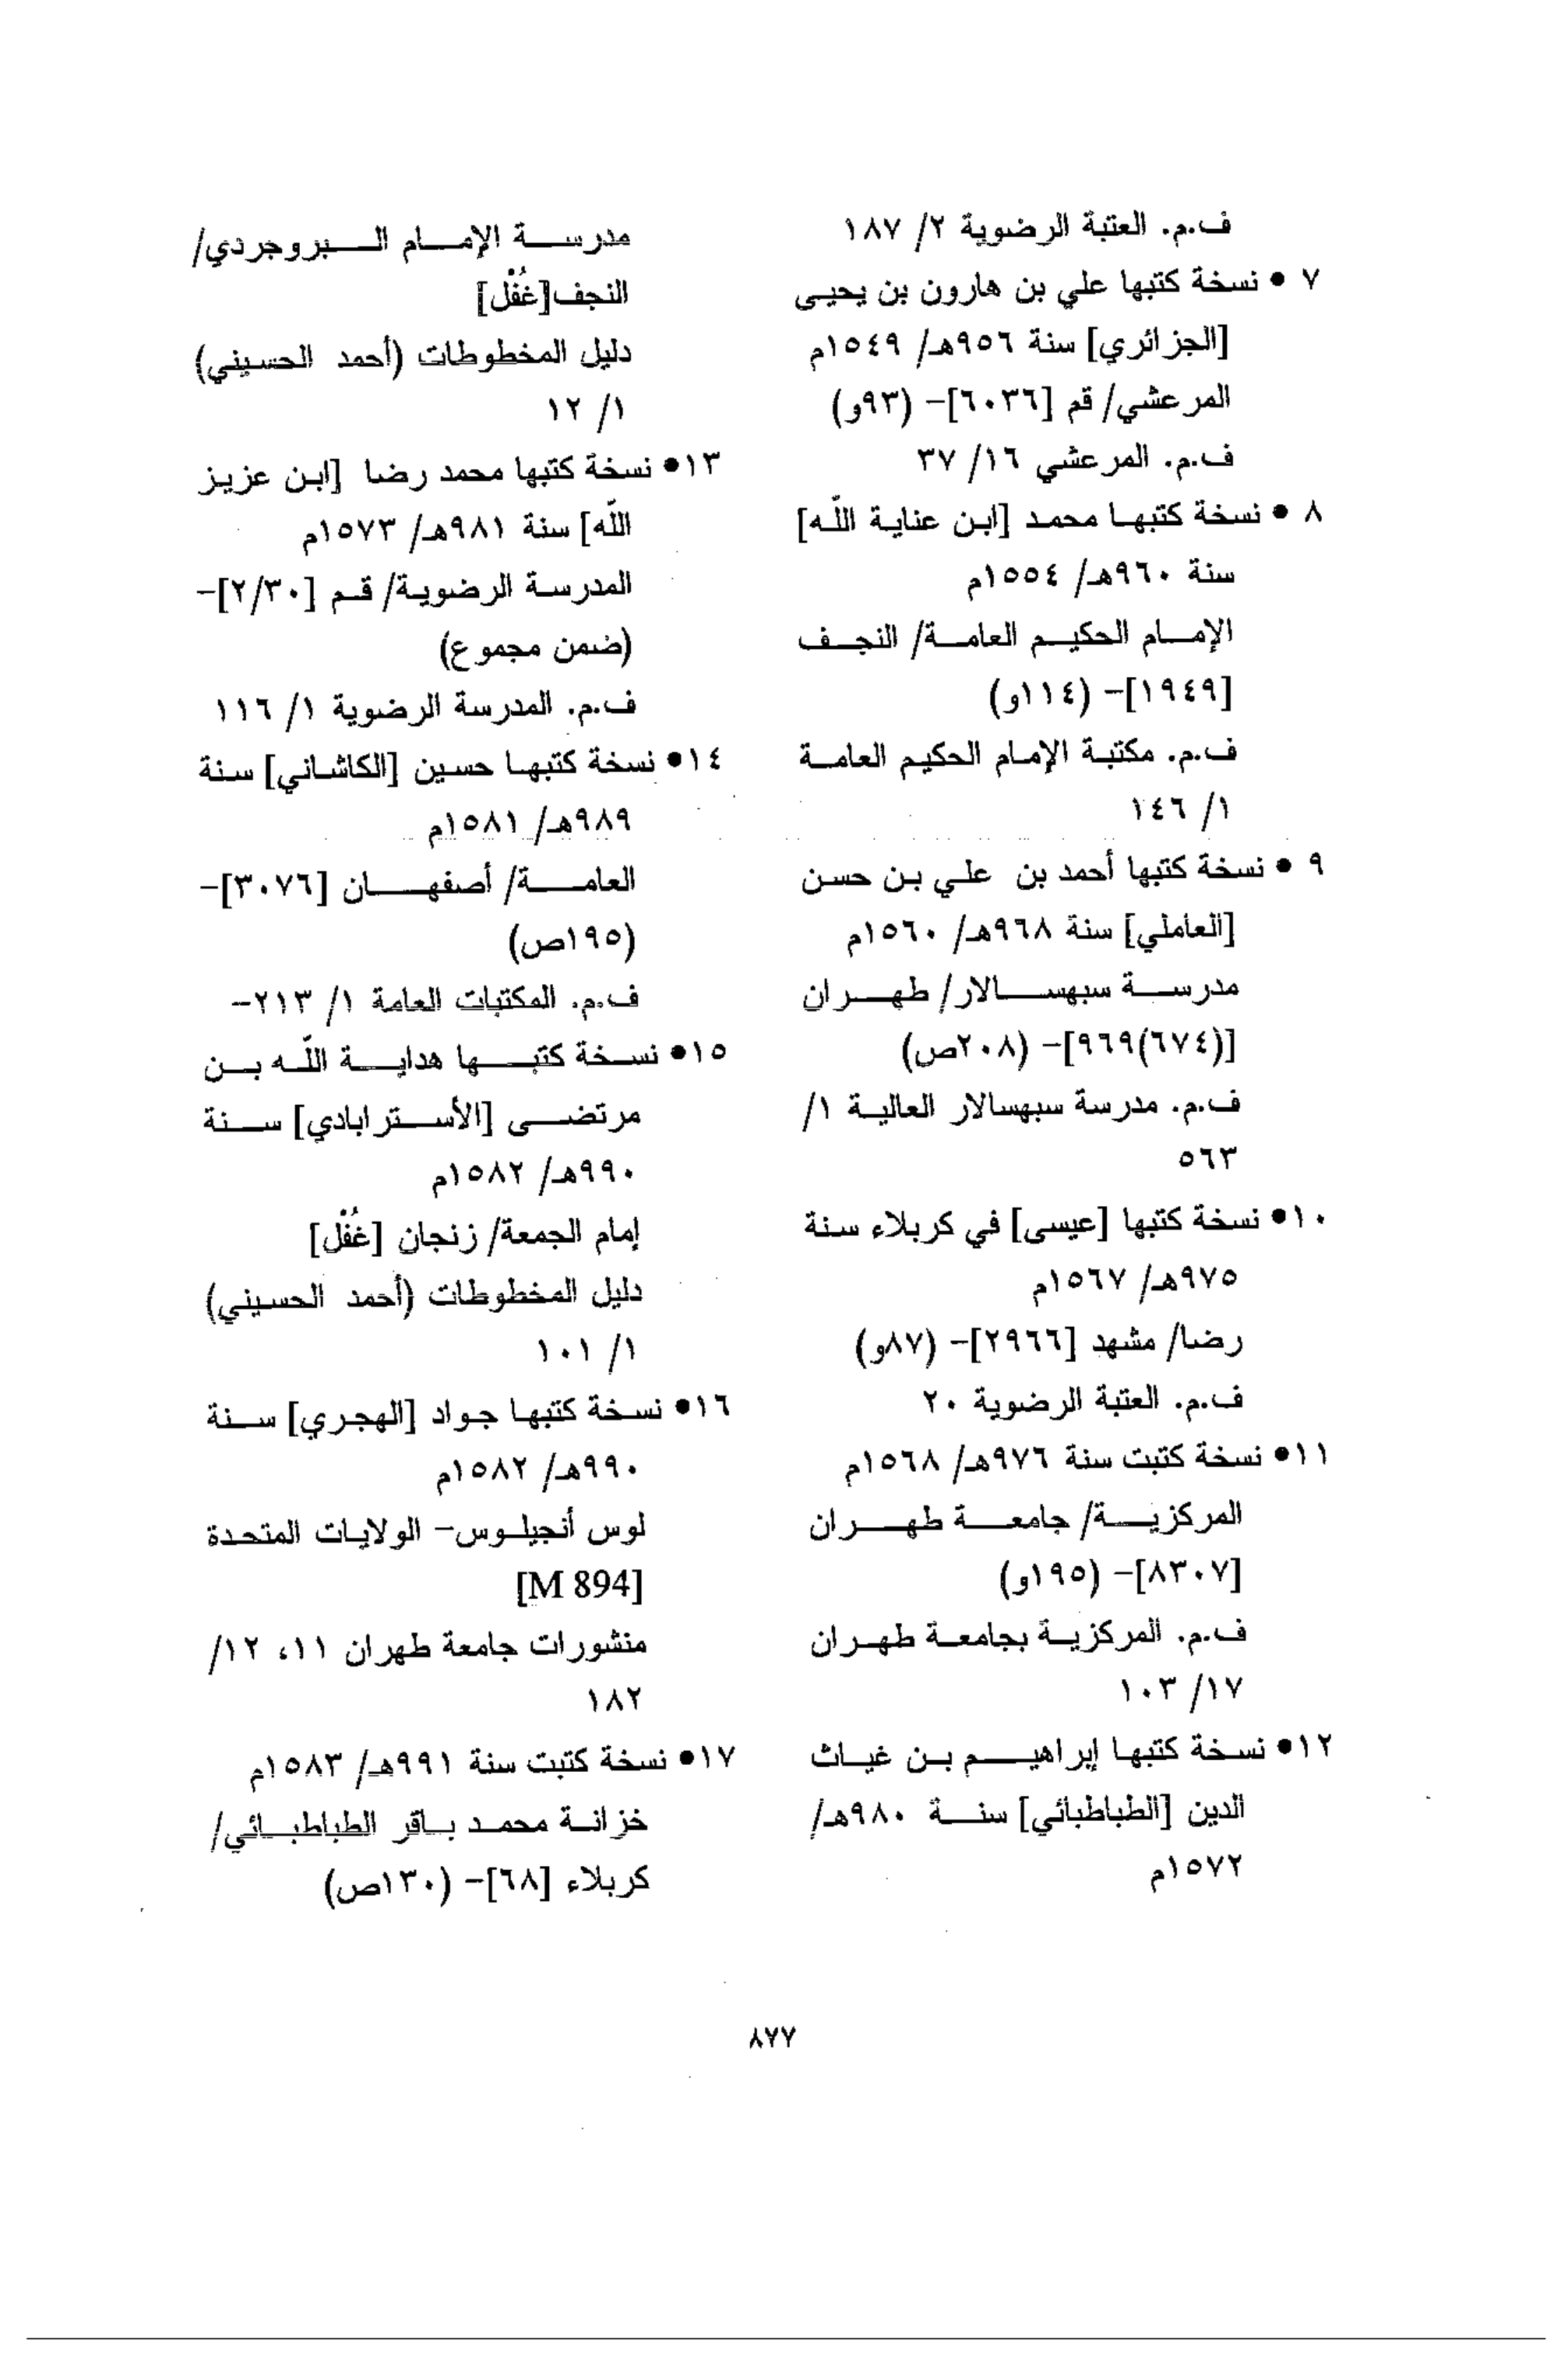 ف.م. العتبة الرضوية ٢/ ١٨٧
٧ • نسخة كتبها علي بن هارون بن يحيى
[الجزائري] سنة ٩٥٦هـ/ ١٥٤٩م
المرعشي/ قم [٦٠٣٦]- (٩٣و)
ف.م. المرعشي ١٦/ ٣٧
٨ • نسخة كتبها محمد [ابن عناية اللّه]
سنة ٩٦٠هـ/ ١٥٥٤م
الإمام الحكيم العامة/ النجف
[١٩٤٩]- (١١٤و)
ف.م. مكتبة الإمام الحكيم العامة
١/ ١٤٦
٩ • نسخة كتبها أحمد بن علي بن حسن
[العاملي] سنة ٩٦٨هـ/ ١٥٦٠م
مدرسة سبهسالار/ طهران
[(٦٧٤)٩٦٩]- (٢٠٨ص)
ف.م. مدرسة سبهسالار العالية ١/
٥٦٣
١٠• نسخة كتبها [عيسى] في كربلاء سنة
٩٧٥هـ/ ١٥٦٧م
رضا/ مشهد [٢٩٦٦]- (٨٧و)
ف.م. العتبة الرضوية ٢٠
١١• نسخة كتبت سنة ٩٧٦هـ/ ١٥٦٨م
المركزية/ جامعة طهران
[٨٣٠٧]- (١٩٥و)
ف.م. المركزية بجامعة طهران
١٧/ ١٠٣
١٢• نسخة كتبها إبراهيم بن غياث
الدين [الطباطبائي] سنة ٩٨٠هـ/
١٥٧٢م
مدرسة الإمام البروجردي/
النجف[غُفْل]
دليل المخطوطات (أحمد الحسيني)
١/ ١٢
١٣• نسخة كتبها محمد رضا [ابن عزيز
اللّه] سنة ٩٨١هـ/ ١٥٧٣م
المدرسة الرضوية/ قم [٢/٣٠]-
(ضمن مجموع)
ف.م. المدرسة الرضوية ١/ ١١٦
١٤• نسخة كتبها حسين [الكاشاني] سنة
٩٨٩هـ/ ١٥٨١م
العامة/ أصفهان [٣٠٧٦]-
(١٩٥ص)
ف.م. المكتبات العامة ١/ ٢١٣-
١٥• نسخة كتبها هداية اللّه بن
مرتضى [الأسترابادي] سنة
٩٩٠هـ/ ١٥٨٢م
إمام الجمعة/ زنجان [غُفْل]
دليل المخطوطات (أحمد الحسيني)
١/ ١٠١
١٦• نسخة كتبها جواد [الهجري] سنة
٩٩٠هـ/ ١٥٨٢م
لوس أنجيلوس- الولايات المتحدة
[M 894]
منشورات جامعة طهران ١١، ١٢/
١٨٢
١٧• نسخة كتبت سنة ٩٩١هـ/ ١٥٨٣م
خزانة محمد باقر الطباطبائي/
كربلاء [٦٨]- (١٣٠ص)
٨٧٧